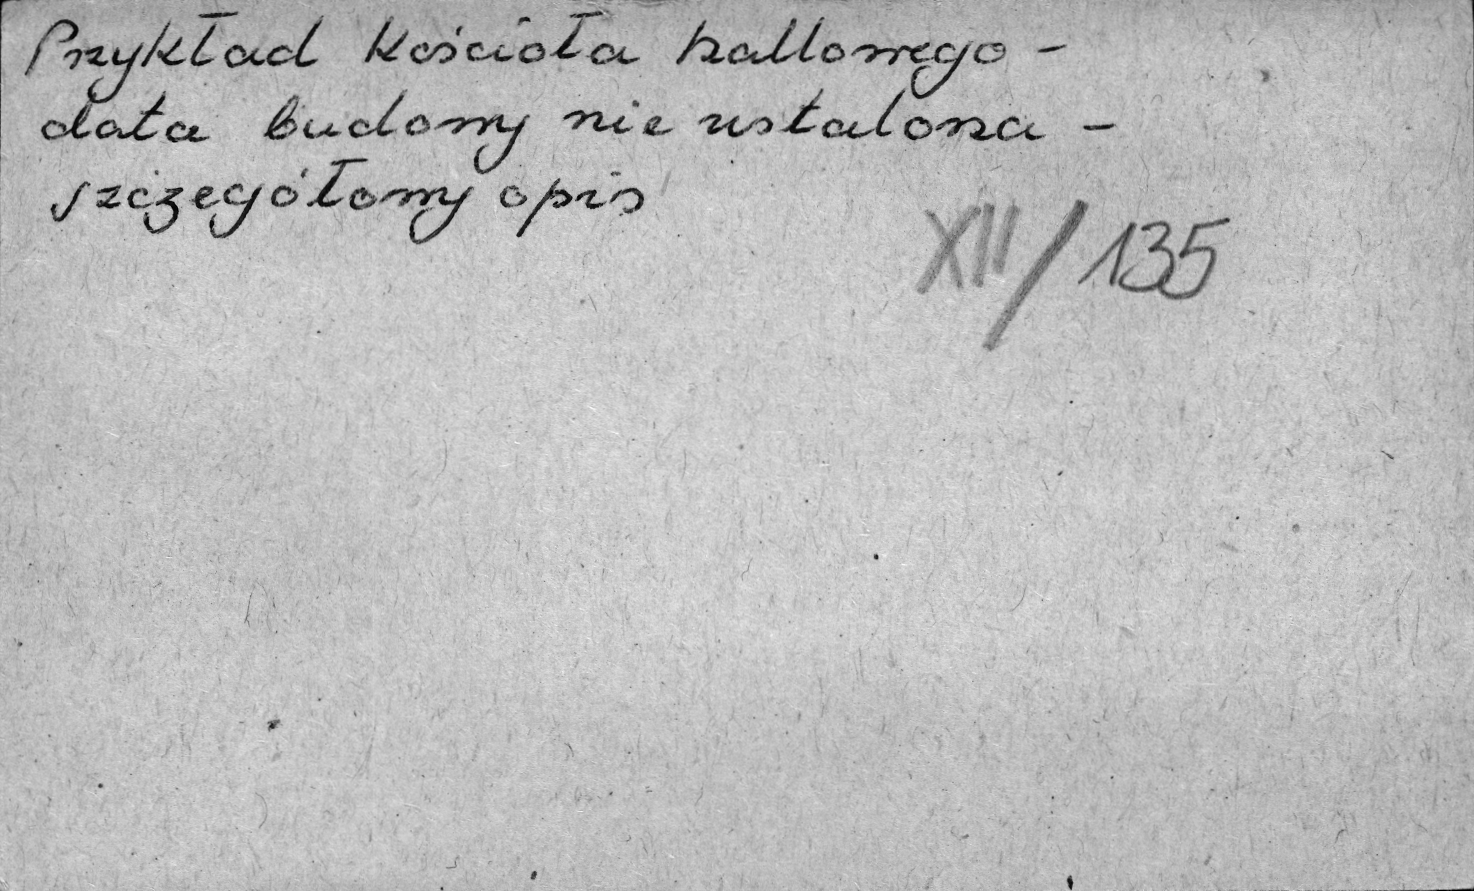 Przykład kościoła hallowego -
data budowy nie ustalona -
szczegółowy opis
XII/135